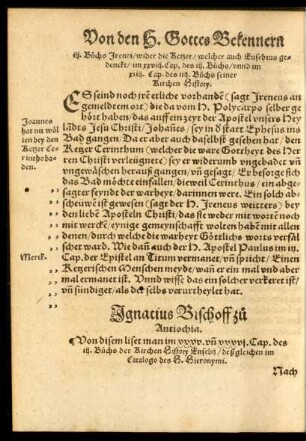 Von den H. Gottes Bekennern
iij. Bůchs Irenei/wider die Ketzer/welcher auch Eusebius ge-
denckt/im xxviij. Cap. des iij. Bůchs/vnnd im
xiiij. Cap. des iiij. Bůchs seiner
Kirchen History.
ES seind noch jrē etliche vorhandē (sagt Ireneus an
gemeldtem ort) die da vom H. Polycarpo selber ge
hört haben/das auff ein zeyt der Apostel vnsers Hey
lādts Jesu Christi/Johānes/sey in d' statt Ephesus ins
Bad gangen. Da er aber auch daselbst gesehen hat/den
Ketzer Cerinthum (welcher die warē Gottheyt des Her
ren Christi verleügnete) sey er widerumb vngebadet vñ
vngewäschen herauß gangen/vñ gesagt/Er besorge sich
das Bad möcht einfallen/dieweil Cerinthus/ein abge-
sagter feynd der warheyt/darinnen were. Ein solch ab-
scheüwē ist gewesen (sagt der H. Ireneus weitters) bey
den liebē Aposteln Christi/das sie weder mit wortē noch
mit wercken/eynige gemeynschafft wolten haben mit allen
denen/durch welche die warheyt Göttlichs worts verfäl
schet ward. Wie dañ auch der H. Apostel Paulus im iij.
Cap. der Epistel an Titum vermanet/vñ spricht/Einen
Ketzerischen Menschen meyde/wañ er ein mal vnd aber
mal ermanet ist. Vnnd wisse das ein solcher verkeret ist/
vñ sündiget/als der selbs verurtheylet hat.
Joannes
hat nit wöl
len bey den
Ketzer Ce-
rinthobaden.
Merck.
Ignatius Bischoff zů
Antiochia.
Von disem liset man im xxxv. vñ xxxvj. Cap. des
iij. Bůchs der Kirchen History Eusebij/deßgleichen im
Catalogo des S. Hieronymi.
Nach